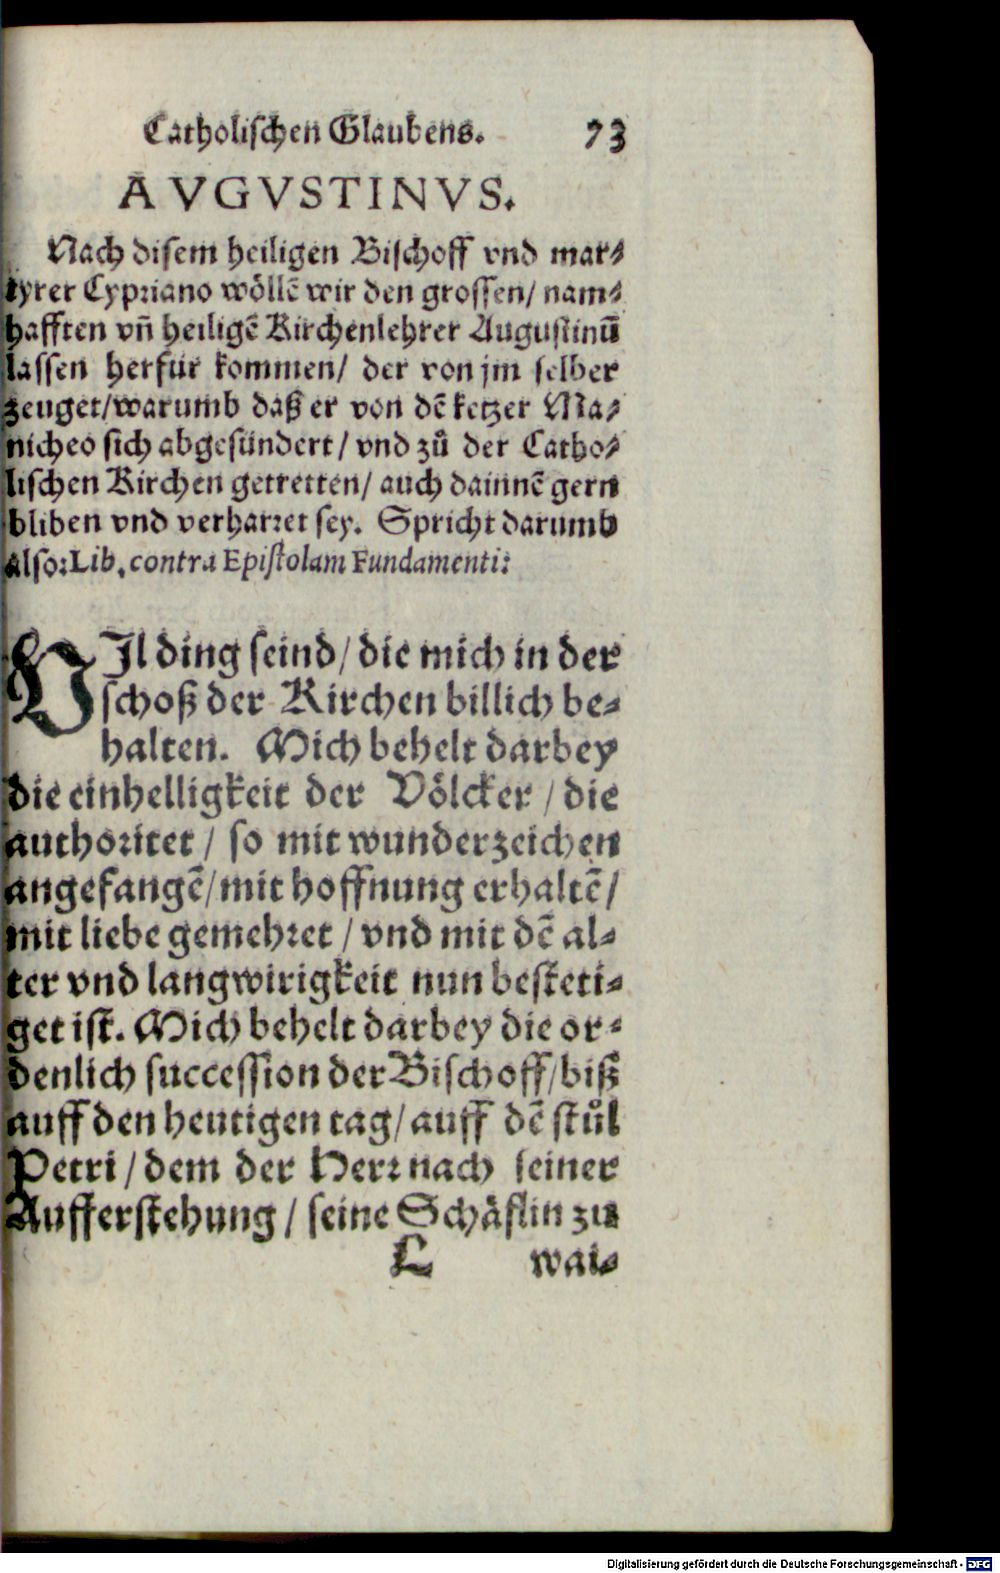 Catholischen Glaubens. 73
AVGVSTINVS.
Nach disem heiligen Bischoff vnd mar⸗
tyrer Cypriano wöllẽ wir den grossen/ nam⸗
hafften vñ heiligẽ Kirchenlehrer Augustinũ
lassen herfür kommen/ der von jm selber
zeuget/warumb daß er von dẽ ketzer Ma⸗
nicheo sich abgesündert/ vnd zů der Catho⸗
lischen Kirchen getretten/ auch dainnẽ gern
bliben vnd verharꝛet sey. Spricht darumb
also: Lib. contra Epistolam Fundamenti:
VIl ding seind/ die mich in der
schoß der Kirchen billich be⸗
halten. Mich behelt darbey
die einhelligkeit der Völcker / die
authoꝛitet / so mit wunderzeichen
angefangẽ/mit hoffnung erhaltẽ/
mit liebe gemehꝛet / vnd mit dẽ al⸗
ter vnd langwirigkeit nun besteti⸗
get ist. Mich behelt darbey die or⸗
denlich succession der Bischoff/biß
auff den heutigen tag/ auff dẽ stůl
Petri / dem der Herꝛ nach seiner
Aufferstehung / seine Schäflin zu
L wai⸗
Digitalisierung gefördert durch die Deutsche Forschungsgemeinschaft - DFG